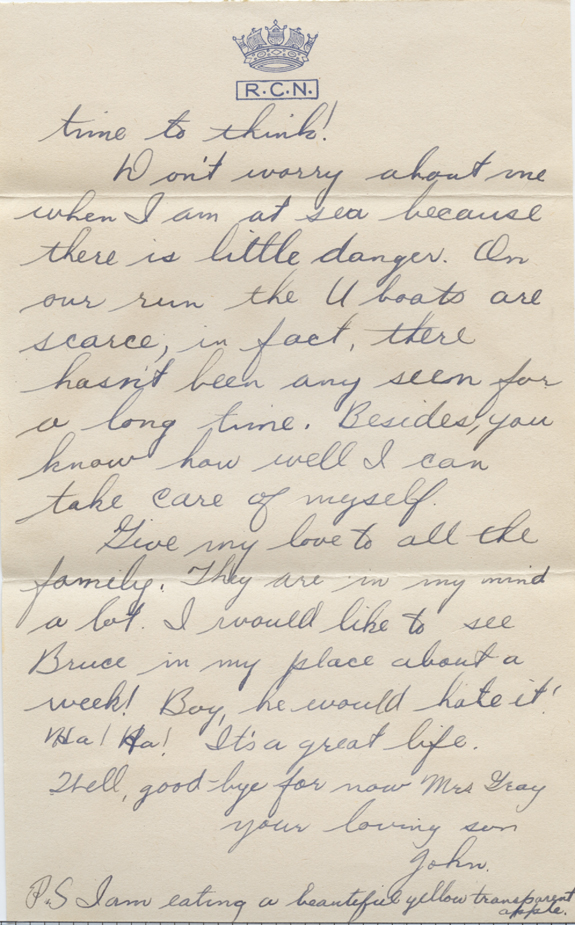 R.C.N.
time to think!
Don't worry about me
when I am at sea because
there is little danger. On
our run the U boats are
scarce, in fact, there
hasn't been any seen for
a long time. Besides, you
know how well I can
take care of myself.
Give my love to all the
family. They are in my mind
a lot. I would like to see
Bruce in my place about a
week! Boy, he would hate it!
Ha! Ha! It's a great life.
Well, good-bye for now Mrs Gray
your loving son
John.
P.S I am eating a beautiful yellow transparent
apple.